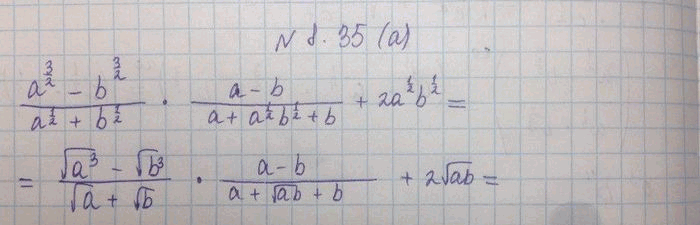 N 8.35 (a)
\frac{a^{\frac{3}{2}} - b^{\frac{3}{2}}}{a^{\frac{1}{2}} + b^{\frac{1}{2}}} \cdot \frac{a - b}{a + a^{\frac{1}{2}} b^{\frac{1}{2}} + b} + 2a^{\frac{1}{2}} b^{\frac{1}{2}} =
= \frac{\sqrt{a^3} - \sqrt{b^3}}{\sqrt{a} + \sqrt{b}} \cdot \frac{a - b}{a + \sqrt{ab} + b} + 2\sqrt{ab} =